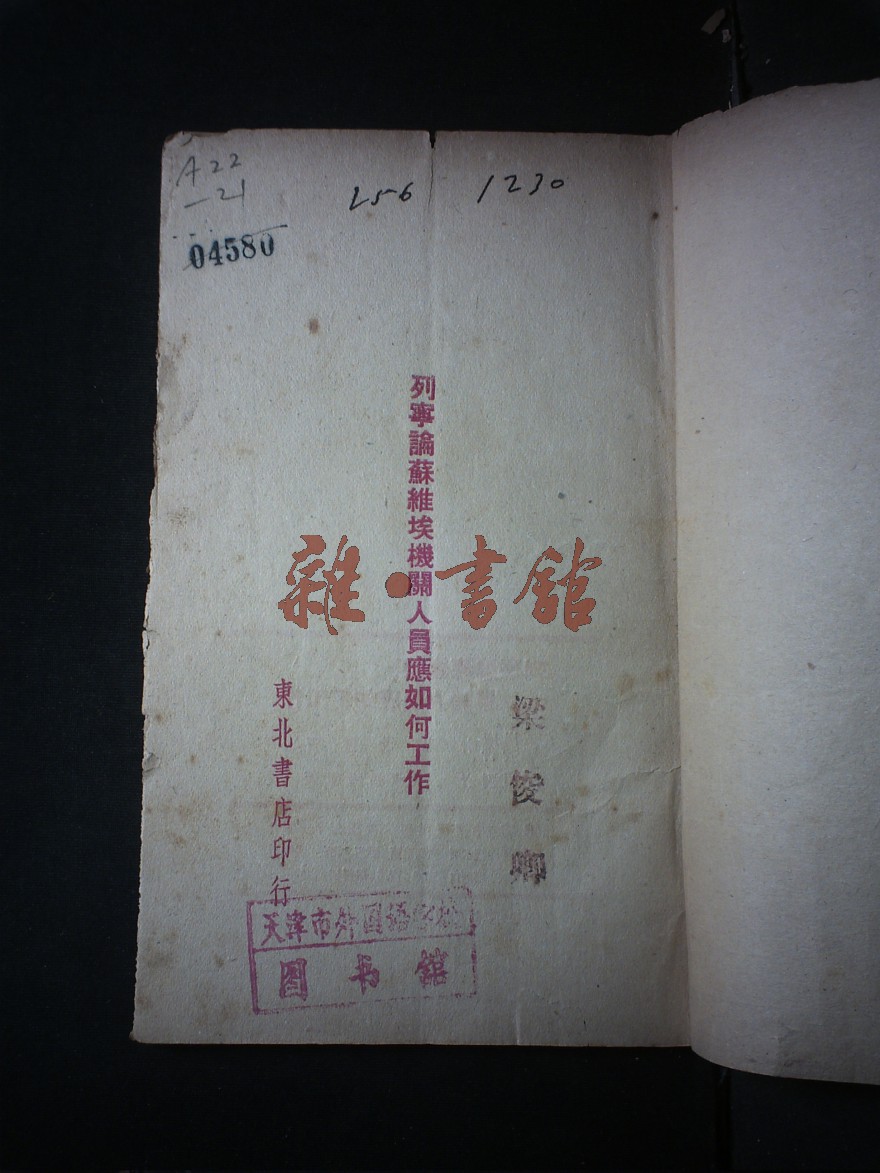 A22
—21
256 1230
04580
列寧論蘇維埃機關人員應如何工作
雜·書館
梁俊卿
東北書店印行
天津市外国语学校
图书馆